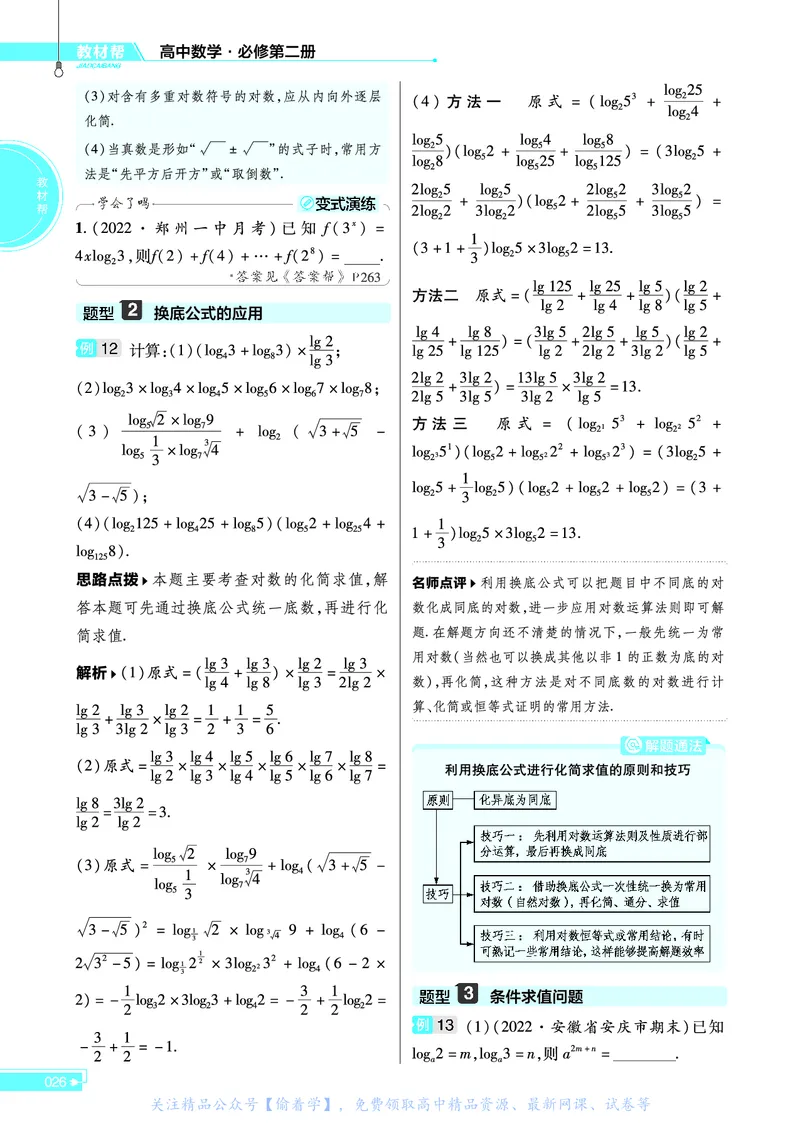 教材帮
JIAOCAIBANG
高中数学·必修第二册
教材帮
(3)对含有多重对数符号的对数,应从内向外逐层
化简.
(4)当真数是形如“√‾ ± √‾”的式子时,常用方
法是“先平方后开方”或“取倒数”.
学会了吗
变式演练
1.(2022·郑州一中月考)已知 f(3^x) =
4xlog₂3,则f(2)+f(4)+⋯+f(2⁸)=____.
*答案见《答案帮》P263
题型 2 换底公式的应用
例 12 计算:(1)(log₄3+log₈3)×lg 2/lg 3;
(2)log₂3×log₃4×log₄5×log₅6×log₆7×log₇8;
(3) (log₅√2×log₇9)/(log₅(1/3)×log₇∛4) + log₂(√(3+√5) −
√(3−√5));
(4)(log₂125+log₄25+log₈5)(log₅2+log₂₅4+
log₁₂₅8).
思路点拨 本题主要考查对数的化简求值,解
答本题可先通过换底公式统一底数,再进行化
简求值.
解析 (1)原式=(lg 3/lg 4+lg 3/lg 8)×lg 2/lg 3=lg 3/2lg 2×
lg 2/lg 3+lg 3/3lg 2×lg 2/lg 3=1/2+1/3=5/6.
(2)原式=lg 3/lg 2×lg 4/lg 3×lg 5/lg 4×lg 6/lg 5×lg 7/lg 6×lg 8/lg 7=
lg 8/lg 2=3lg 2/lg 2=3.
(3)原式=log₅√2/log₅(1/3)×log₇9/log₇∛4+log₄(√(3+√5)−
√(3−√5))²=log_{1/3}√2×log_{∛4}9+log₄(6−
2√(3²−5))=log_{1/3}2^{1/2}×3log_{2²}3²+log₄(6−2×
2)=−1/2log₃2×3log₂3+log₄2=−3/2+1/2log₂2=
−3/2+1/2=−1.
(4)方法一 原式=(log₂5³+log₂25/log₂4+
log₂5/log₂8)(log₅2+log₅4/log₅25+log₅8/log₅125)=(3log₂5+
2log₂5/2log₂2+log₂5/3log₂2)(log₅2+2log₅2/2log₅5+3log₅2/3log₅5)=
(3+1+1/3)log₂5×3log₅2=13.
方法二 原式=(lg 125/lg 2+lg 25/lg 4+lg 5/lg 8)(lg 2/lg 5+
lg 4/lg 25+lg 8/lg 125)=(3lg 5/lg 2+2lg 5/2lg 2+lg 5/3lg 2)(lg 2/lg 5+
2lg 2/2lg 5+3lg 2/3lg 5)=13lg 5/3lg 2×3lg 2/lg 5=13.
方法三 原式=(log_{2¹}5³+log_{2²}5²+
log_{2³}5¹)(log₅2+log_{5²}2²+log_{5³}2³)=(3log₂5+
log₂5+1/3log₂5)(log₅2+log₅2+log₅2)=(3+
1+1/3)log₂5×3log₅2=13.
名师点评 利用换底公式可以把题目中不同底的对
数化成同底的对数,进一步应用对数运算法则即可解
题.在解题方向还不清楚的情况下,一般先统一为常
用对数(当然也可以换成其他以非1的正数为底的对
数),再化简,这种方法是对不同底数的对数进行计
算、化简或恒等式证明的常用方法.
解题通法
利用换底公式进行化简求值的原则和技巧
原则
化异底为同底
技巧
技巧一: 先利用对数运算法则及性质进行部
分运算,最后再换成同底
技巧二: 借助换底公式一次性统一换为常用
对数(自然对数),再化简、通分、求值
技巧三: 利用对数恒等式或常用结论,有时
可熟记一些常用结论,这样能够提高解题效率
题型 3 条件求值问题
例 13 (1)(2022·安徽省安庆市期末)已知
logₐ2=m,logₐ3=n,则a^{2m+n}=________.
026
关注精品公众号【偷着学】,免费领取高中精品资源、最新网课、试卷等